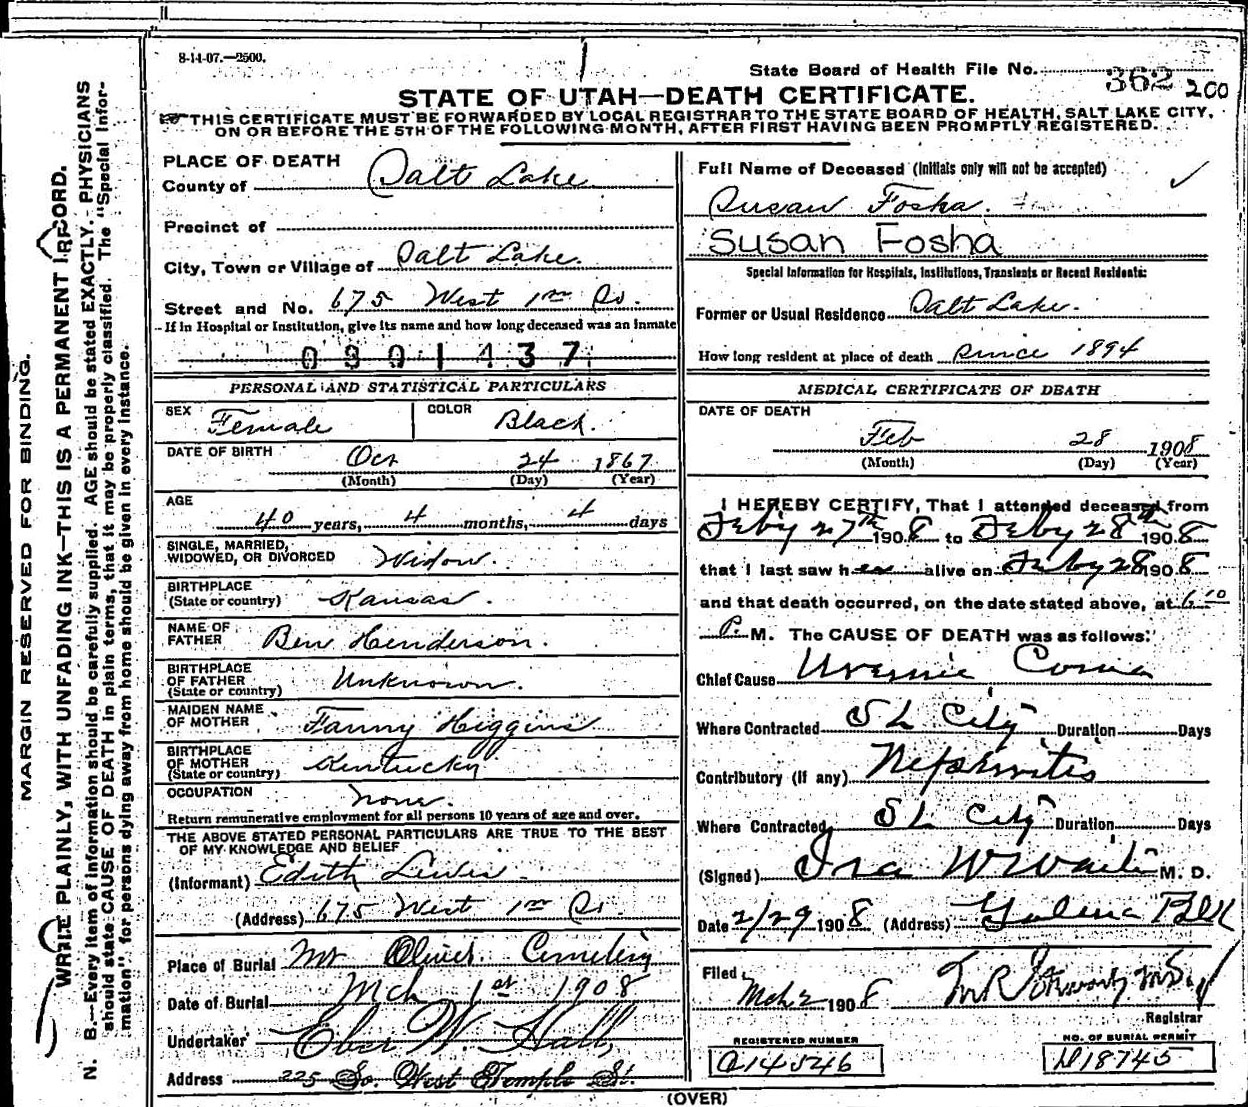 8-14-07.—2500.
State Board of Health File No. 362 200
STATE OF UTAH—DEATH CERTIFICATE.
THIS CERTIFICATE MUST BE FORWARDED BY LOCAL REGISTRAR TO THE STATE BOARD OF HEALTH, SALT LAKE CITY,
ON OR BEFORE THE 5TH OF THE FOLLOWING MONTH, AFTER FIRST HAVING BEEN PROMPTLY REGISTERED.
MARGIN RESERVED FOR BINDING.
WRITE PLAINLY, WITH UNFADING INK—THIS IS A PERMANENT RECORD.
N. B.—Every item of information should be carefully supplied. AGE should be stated EXACTLY. PHYSICIANS
should state CAUSE OF DEATH in plain terms, that it may be properly classified. The "Special Infor-
mation" for persons dying away from home should be given in every instance.
PLACE OF DEATH
County of Salt Lake
Precinct of
City, Town or Village of Salt Lake.
Street and No. 675 West 1st So.
If in Hospital or Institution, give its name and how long deceased was an inmate
0801437
PERSONAL AND STATISTICAL PARTICULARS
SEX Female COLOR Black.
DATE OF BIRTH Oct 24 1867
(Month) (Day) (Year)
AGE
40 years, 4 months, 4 days
SINGLE, MARRIED,
WIDOWED, OR DIVORCED Widow.
BIRTHPLACE
(State or country) Kansas.
NAME OF
FATHER Ben Henderson.
BIRTHPLACE
OF FATHER
(State or country) Unknown.
MAIDEN NAME
OF MOTHER Fanny Higgins
BIRTHPLACE
OF MOTHER
(State or country) Kentucky
OCCUPATION none.
Return remunerative employment for all persons 10 years of age and over.
THE ABOVE STATED PERSONAL PARTICULARS ARE TRUE TO THE BEST
OF MY KNOWLEDGE AND BELIEF
(Informant) Edith Lewis
(Address) 675 West 1st So.
Place of Burial Mt Olivet Cemetery
Date of Burial Mch 1st 1908
Undertaker Eber W. Hall,
Address 225 So. West Temple St.
Full Name of Deceased (Initials only will not be accepted)
Susan Fosha.
Susan Fosha
Special Information for Hospitals, Institutions, Transients or Recent Residents:
Former or Usual Residence Salt Lake.
How long resident at place of death since 1894
MEDICAL CERTIFICATE OF DEATH
DATE OF DEATH
Feb 28 1908
(Month) (Day) (Year)
I HEREBY CERTIFY, That I attended deceased from
Feby 27th 1908 to Feby 28th 1908
that I last saw her alive on Feby 28 1908
and that death occurred, on the date stated above, at 6 10
P. M. The CAUSE OF DEATH was as follows:
Chief Cause Uremic Coma
Where Contracted S L City Duration Days
Contributory (if any) Nephritis
Where Contracted S L City Duration Days
(Signed) Ira W M. D.
Date 2/29 1908 (Address) Galena Blk
Filed Mch 2 1908
Registrar
REGISTERED NUMBER
NO. OF BURIAL PERMIT
A14546
A18745
(OVER)